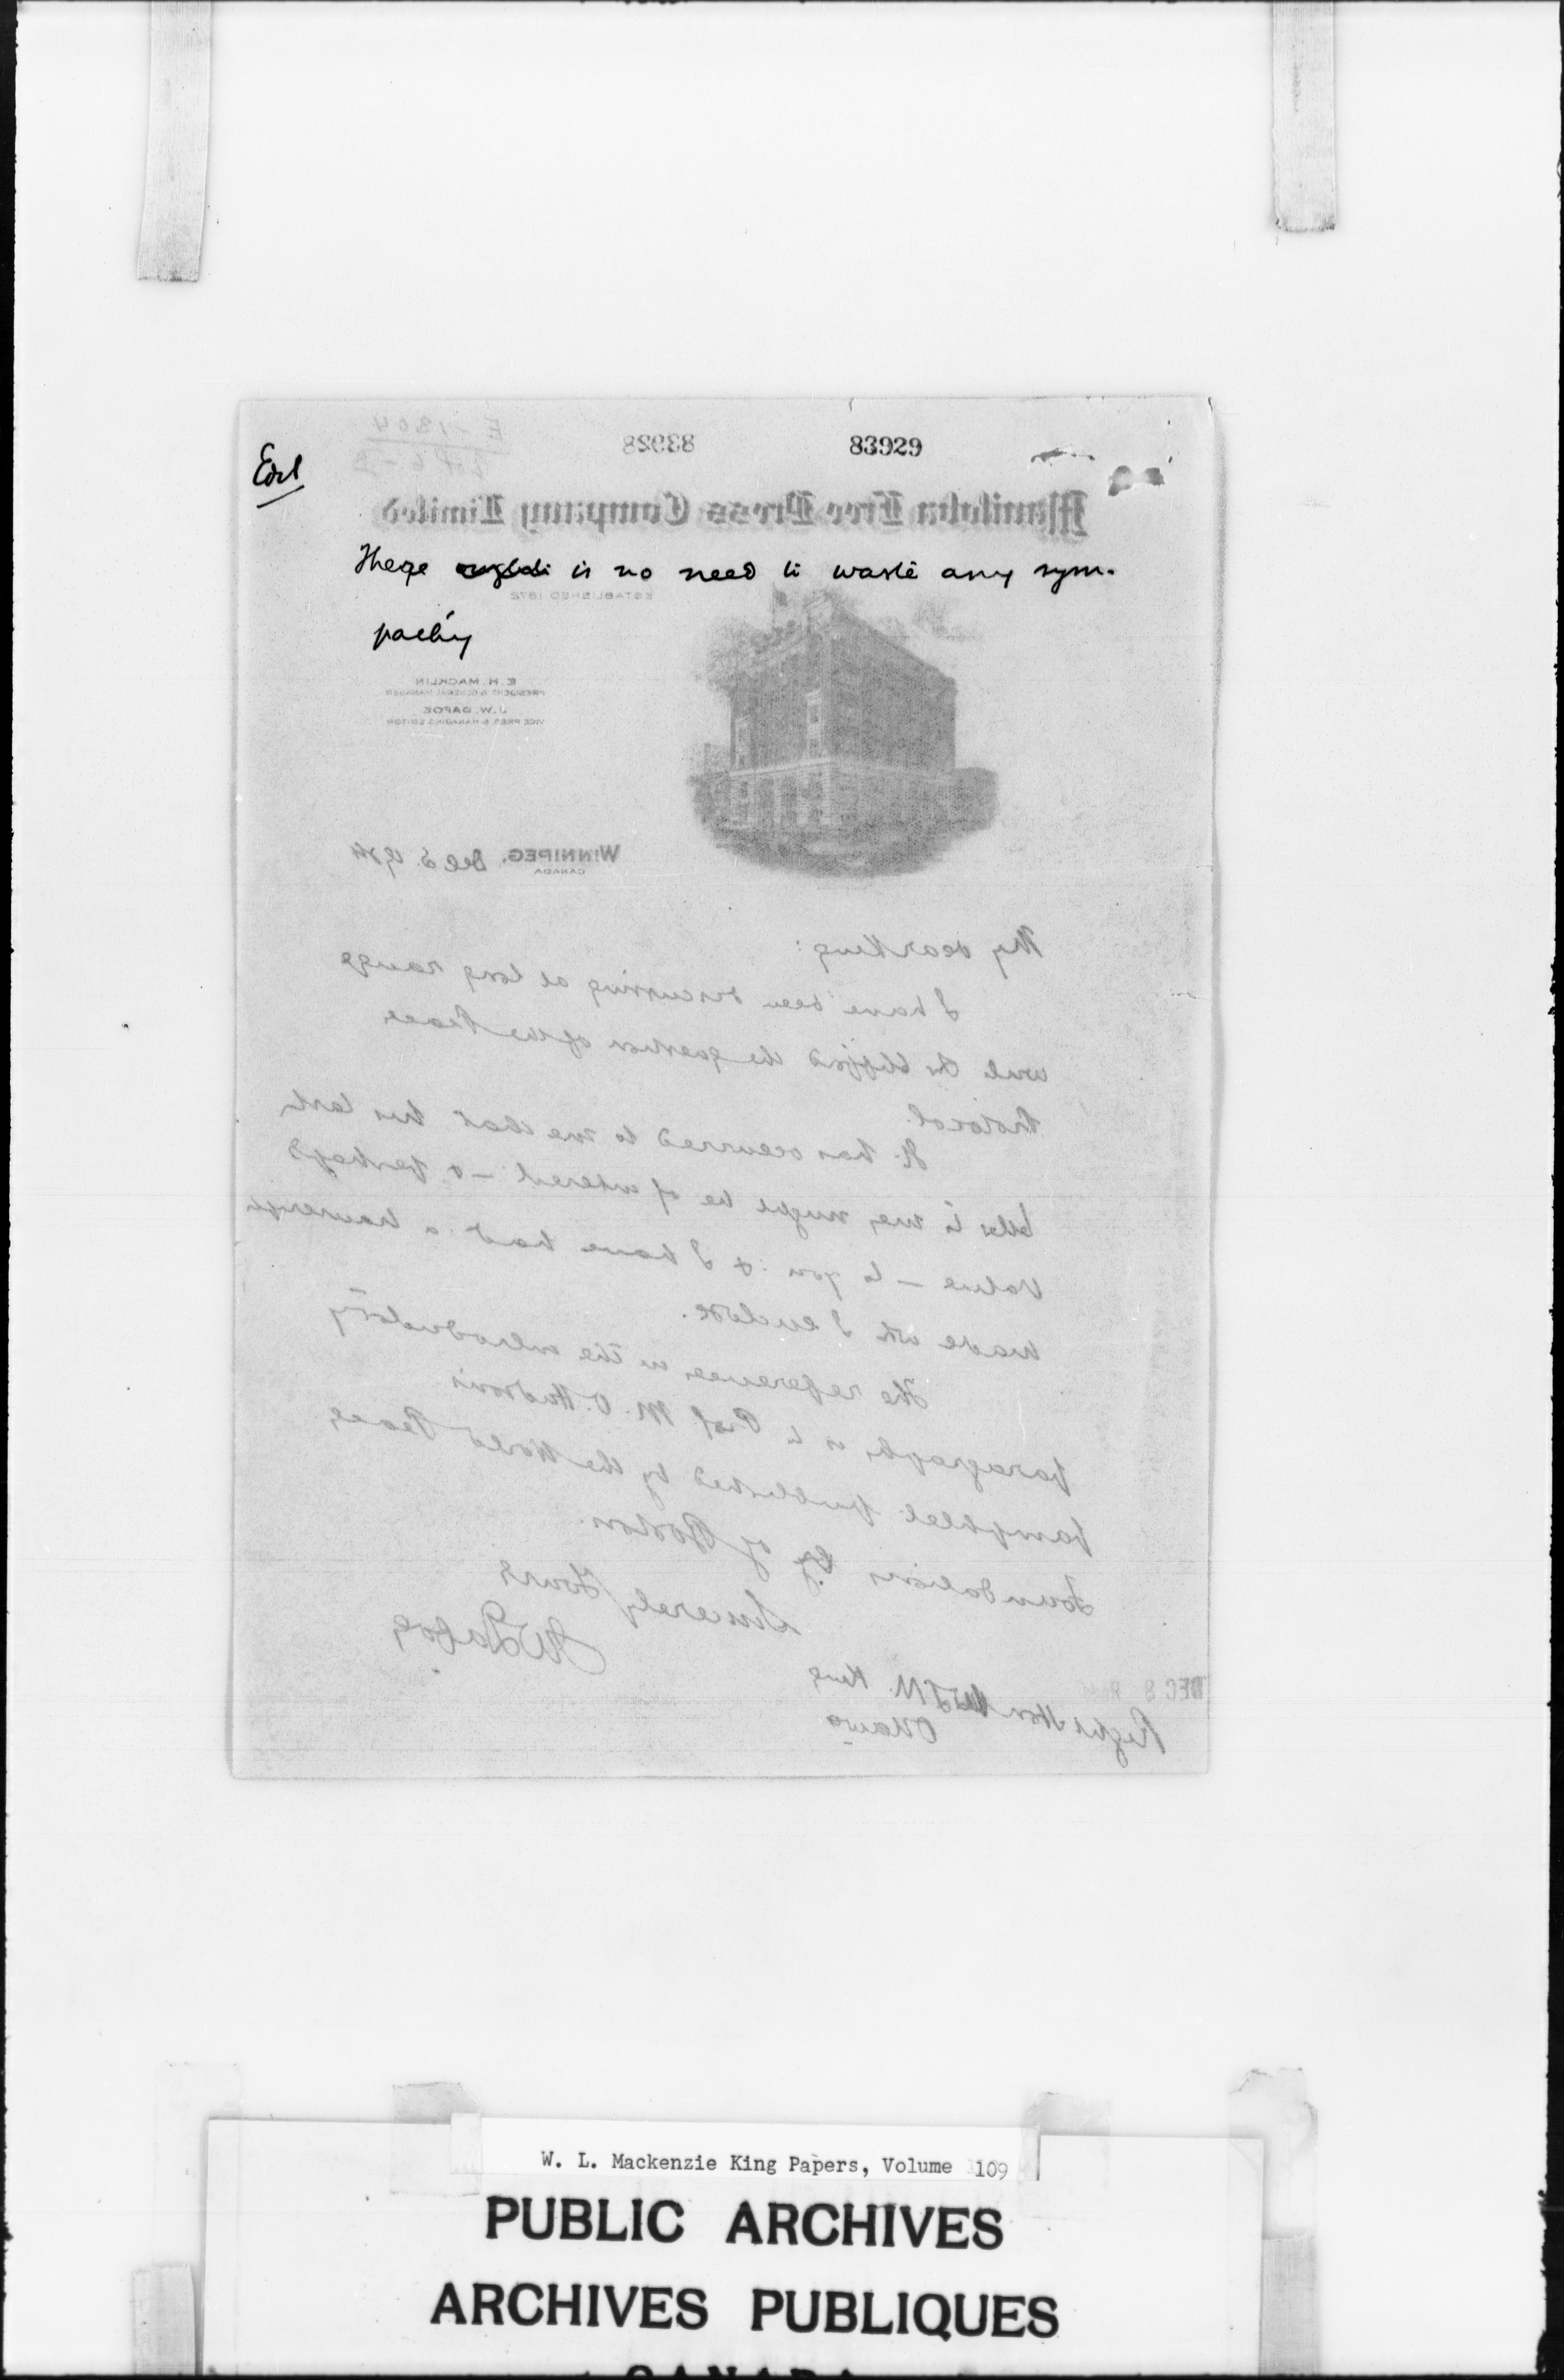 83928 83929
Edl
Manitoba Free Press Company Limited
There is no need to waste any sym-
ESTABLISHED 1872
pathy
E. H. MACKLIN
PRESIDENT & GENERAL MANAGER
J. W. DAFOE
VICE PRES. & MANAGING EDITOR
WINNIPEG, Dec 5 1924
CANADA
My dear King:
I have been discussing at long range
with Sir Clifford the question of the Peace
Protocol.
It has occurred to me that his last
letter to me might be of interest – & perhaps
value – to you & I have had a transcript
made wh I enclose.
The reference in the introductory
paragraph is to Prof M. O. Hudson's
pamphlet published by the World Peace
Foundation of Boston.
Sincerely Yours
JW Dafoe
DEC 8
Right Hon W.L.M. King
Ottawa
W. L. Mackenzie King Papers, Volume 109
PUBLIC ARCHIVES
ARCHIVES PUBLIQUES
CANADA